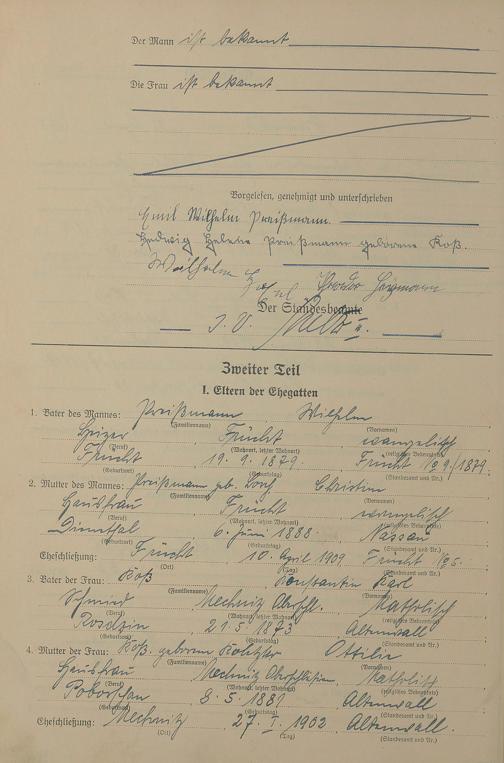 Der Mann ist bekannt
Die Frau ist bekannt
Vorgelesen, genehmigt und unterschrieben
Emil Wilhelm Preißmann.
Hedwig Helene Preißmann geborene Koß.
Wilhelm
Der Standesbeamte
I. V.
Zweiter Teil
I. Eltern der Ehegatten
1. Vater des Mannes: Preißmann Wilhelm
(Familienname) (Vornamen)
Frücht evangelisch
(Beruf) (Wohnort, letzter Wohnort) (religiöses Bekenntnis)
Frücht 19. 9. 1879. Frücht 19/1879.
(Geburtsort) (Geburtstag) (Standesamt und Nr.)
2. Mutter des Mannes: Preißmann geb. Christine
(Familienname) (Vornamen)
Hausfrau Frücht evangelisch
(Beruf) (Wohnort, letzter Wohnort) (religiöses Bekenntnis)
Dienethal 6. Juni 1888. Nassau
(Geburtsort) (Geburtstag) (Standesamt und Nr.)
Eheschließung: Frücht 10. April 1909. Frücht
(Ort) (Tag) (Standesamt und Nr.)
3. Vater der Frau: Koß Konstantin Karl
(Familienname) (Vornamen)
Schmied Mechnitz Oberschl. Katholisch
(Beruf) (Wohnort, letzter Wohnort) (religiöses Bekenntnis)
Rosdzin 21. 5. 1873 Altenwall
(Geburtsort) (Geburtstag) (Standesamt und Nr.)
4. Mutter der Frau: Koß. geborene Ottilie
(Familienname) (Vornamen)
Hausfrau Mechnitz Oberschlesien Katholisch
(Beruf) (Wohnort, letzter Wohnort) (religiöses Bekenntnis)
8. 5. 1881 Altenwall
(Geburtsort) (Geburtstag) (Standesamt und Nr.)
Eheschließung: Mechnitz 27. I. 1902 Altenwall.
(Ort) (Tag) (Standesamt und Nr.)